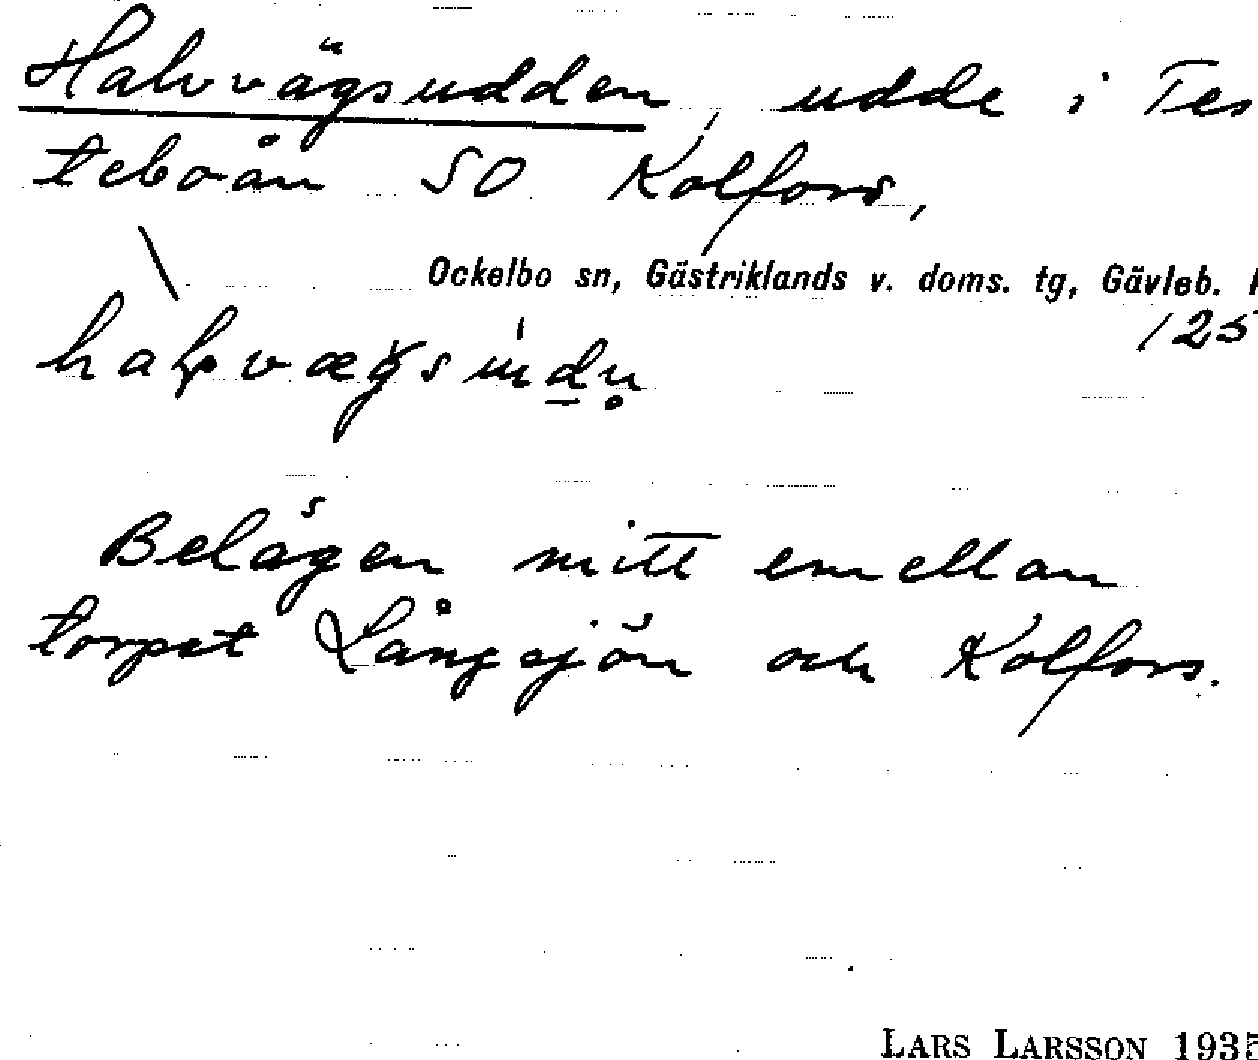 Halvvägsudden, udde i Tes
teboån SO Kolfors,
Ockelbo sn, Gästriklands v. doms. tg, Gävleb.
125
Belägen mitt emellan
torpet Långsjön och Kolfors.
LARS LARSSON 1935